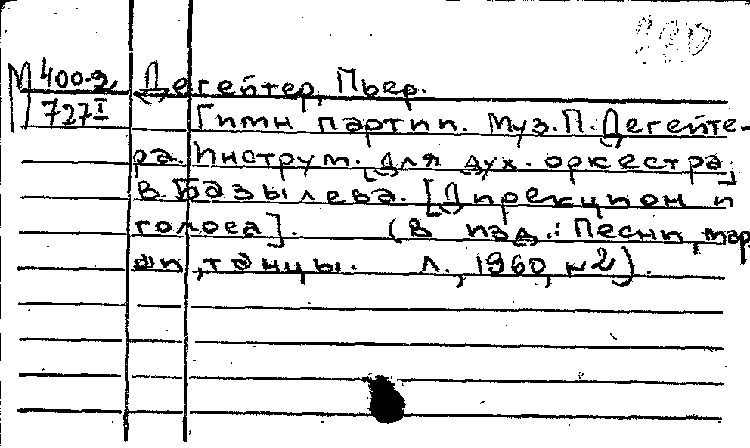 М 400-2 Дегейтер, Пьер.
727 I Гимн партии. Муз. П. Дегейте-
ра. Инструм. для дух. оркестра
В. Базылева. [Дирекцион и
голоса]. (В изд.: Песни, мар
ши, танцы. Л., 1960, №2).